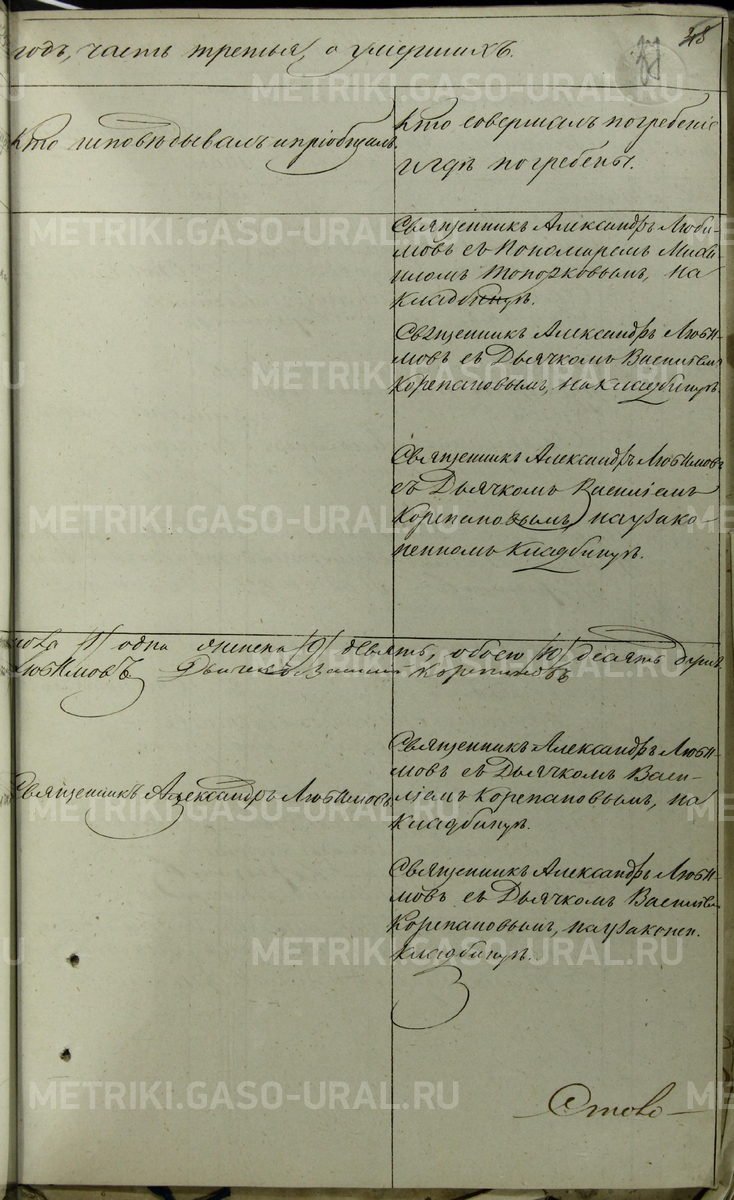 годъ, часть третья, о умершихъ.
48
Кто исповѣдывалъ и пріобщалъ.
Кто совершалъ погребеніе
и гдѣ погребены.
Священникъ Александръ Люби-
мовъ съ Пономаремъ Михаи-
ломъ Топорковымъ, на
кладбищѣ.
Священникъ Александръ Люби-
мовъ съ Дьячкомъ Василіемъ
Корепановымъ, на кладбищѣ.
Священникъ Александръ Любимовъ
съ Дьячкомъ Василіемъ
Корепановымъ, на узако-
ненномъ кладбищѣ.
пола /1/ одна женска /9/ девять, обоего /10/ десять
Любимовъ Дьячекъ Василій Корепановъ
Священникъ Александръ Люби-
мовъ съ Дьячкомъ Васи-
Священникъ Александръ Любимовъ
ліемъ Корепановымъ, на
кладбищѣ.
Священникъ Александръ Люби-
мовъ съ Дьячкомъ Василіемъ
Корепановымъ, на узаконен.
кладбищѣ.
METRIKI.GASO-URAL.RU